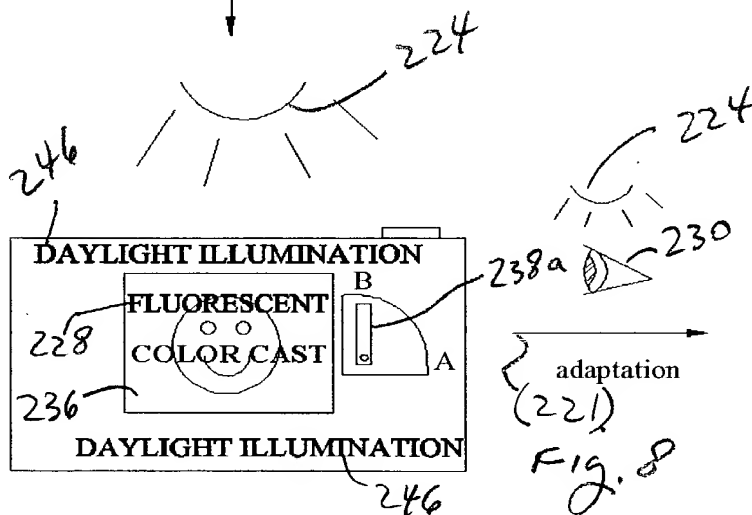 224
224
246
DAYLIGHT ILLUMINATION
230
238a
B
FLUORESCENT
228
COLOR CAST
A
236
adaptation
(221)
DAYLIGHT ILLUMINATION
Fig. 8
246